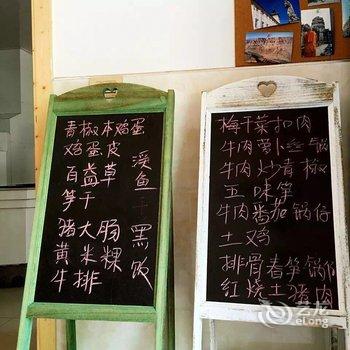 青椒本鸡蛋
鸡蛋皮
百益草
笋干
猪大肠
黄米粿
牛排
溪鱼干
黑饭
梅干菜扣肉
牛肉萝卜丝锅
牛肉炒青椒
五味笋
牛肉番茄锅仔
土鸡
排骨春笋锅仔
红烧土猪肉
艺龙
eLong